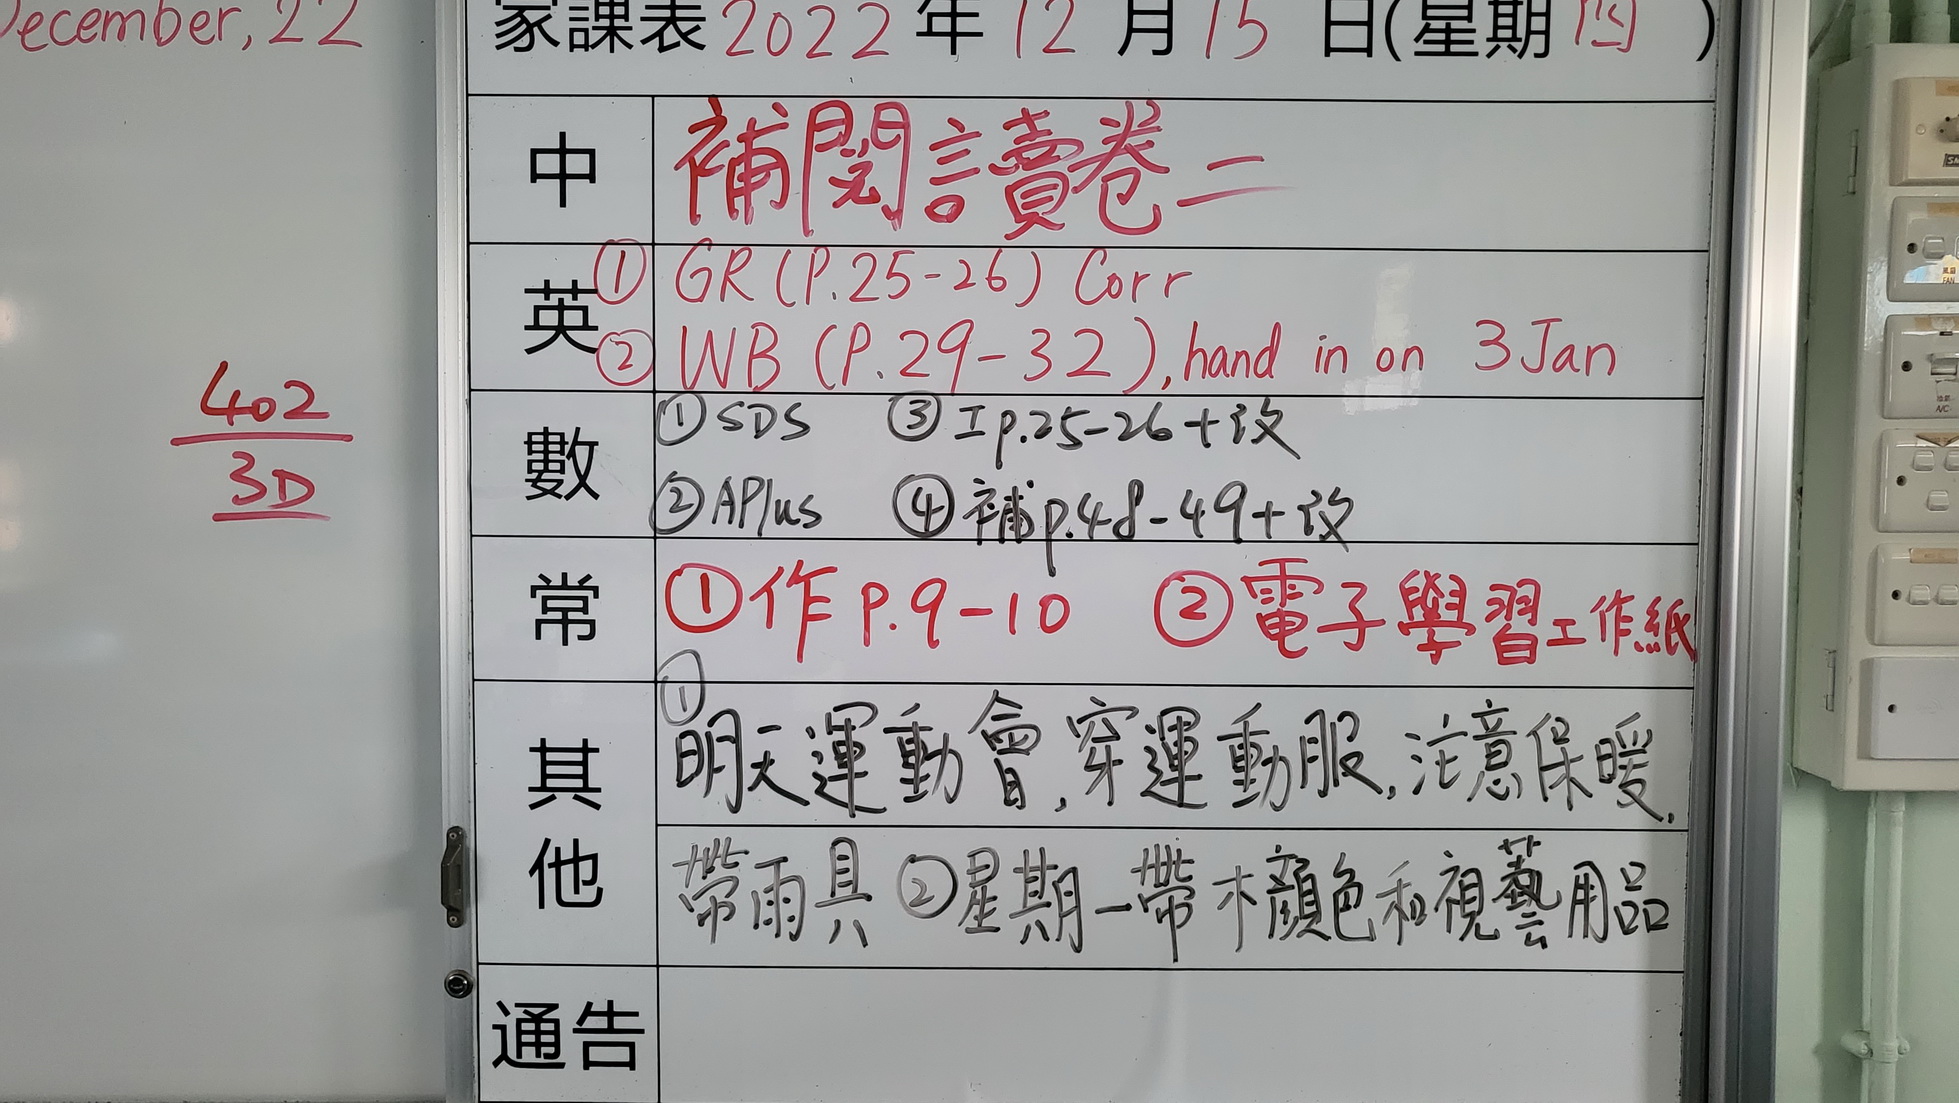 December, 22
402
3D
家課表 2022 年 12 月 15 日(星期 四 )
中 補閱讀卷二
英 ① GR (P.25-26) Corr
② WB (P.29-32), hand in on 3 Jan
數 ① SDS ③ 工p.25-26+改
② APlus ④ 補p.48-49+改
常 ①作 P.9-10 ②電子學習工作紙
其他 ①明天運動會,穿運動服,注意保暖,
帶雨具 ②星期一帶木顏色和視藝用品
通告